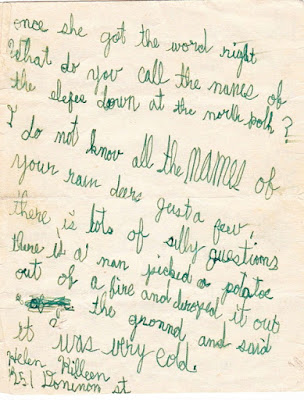 once she got the word right
What do you call the names of
the elefes down at the north poth ?
I do not know all the NAMES of
your rain dears just a few,
there is lots of silly questions
there is a man picked a potatoe
out of a fire and droyed it out
the ground and said
it was very cold.
Helen Killeen
251 Doninon st